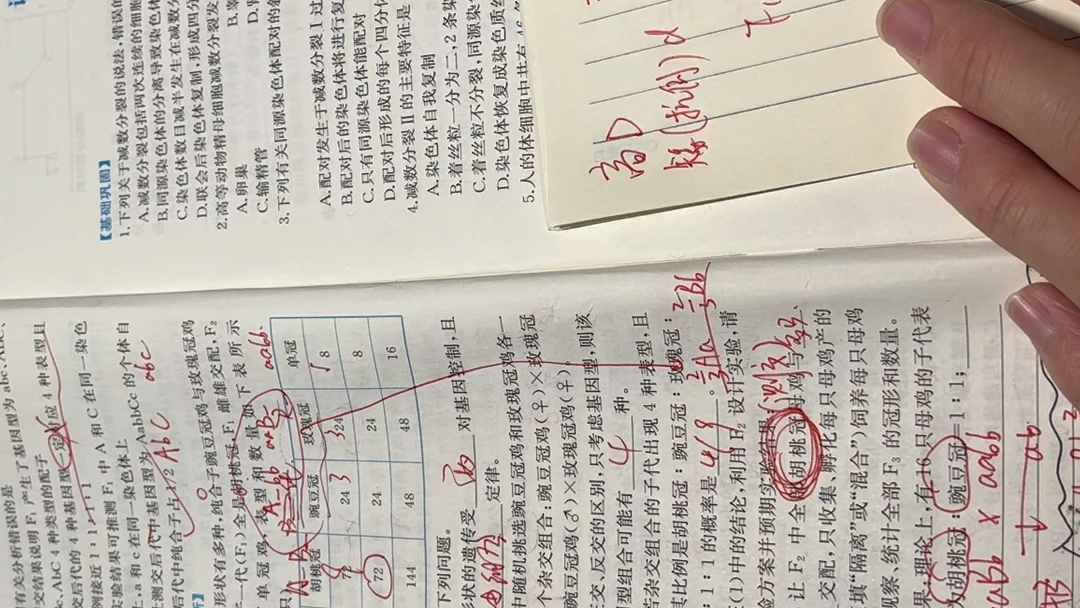 【基础巩固】
1.下列关于减数分裂的说法,错误的
A.减数分裂包括两次连续的细胞
B.同源染色体的分离导致染色体
C.染色体数目减半发生在减数分
D.联会后染色体复制,形成四分
2.高等动物精母细胞减数分裂发
A.卵巢
B.睾
C.输精管
D.
3.下列有关同源染色体配对的叙
A.配对发生于减数分裂Ⅰ过
B.配对后的染色体将进行复
C.只有同源染色体能配对
D.配对后形成的每个四分体
4.减数分裂Ⅱ的主要特征是
A.染色体自我复制
B.着丝粒一分为二,2条染
C.着丝粒不分裂,同源染色
D.染色体恢复成染色质丝
5.人的体细胞中共有46
高D
(抗倒)d
有关分析错误的是
交结果说明F₁产生了基因型为abc、ABC、
c、AbC 4种类型的配子
交后代的4种基因型一定对应4种表型且
例接近1:1:1:1
实验结果可推测F₁中A和C在同一染色
上,a和c在同一染色体上
测交后代中基因型为AabbCc的个体自
后代中纯合子占1/2
AbC
abc
形状有多种,纯合子豌豆冠鸡与玫瑰冠鸡
一代(F₁)全是胡桃冠,F₁雌雄交配,F₂
单冠鸡,表型和数量如下表所示
A-B- A-bb aaB- aabb
胡桃冠 豌豆冠 玫瑰冠 单冠
72 24 24 8
72 24 24 8
144 48 48 16
下列问题。
形状的遗传受 两 对基因控制,且
自由组合 定律。
中随机挑选豌豆冠鸡和玫瑰冠鸡各一
个杂交组合:豌豆冠鸡(♀)×玫瑰冠
豌豆冠鸡(♂)×玫瑰冠鸡(♀)
交、反交的区别,只考虑基因型,则该
型组合可能有 4 种。
若杂交组合的子代出现4种表型,且
其比例是胡桃冠:豌豆冠:玫瑰冠:
:1:1的概率是 4/9 。
2/3Aa 2/3Bb
在(1)中的结论,利用F₂设计实验,请
验方案并预期实验结果
(测交)
让F₂中全部胡桃冠母鸡与
交配,只收集、孵化每只母鸡产的
填“隔离”或“混合”)饲养每只母鸡
观察、统计全部F₃的冠形和数量。
果:理论上,有16只母鸡的子代表
为胡桃冠:豌豆冠=1:1;
aabb
ab